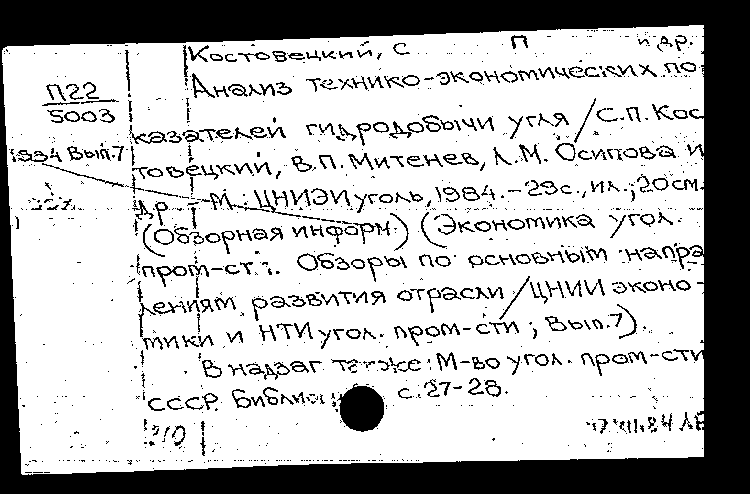 Костовецкий, С П и др.
П22
5003
1984 Вып.7
Анализ технико-экономических по-
казателей гидродобычи угля / С.П. Кос
товецкий, В.П. Митенев, Л.М. Осипова и
др - М.: ЦНИЭИуголь, 1984. - 29с., ил.; 20см.
(Обзорная информ.) (Экономика угол.
пром-сти. Обзоры по основным напра
лениям развития отрасли / ЦНИИ эконо-
мики и НТИ угол. пром-сти; Вып.7).
В надзаг также: М-во угол. пром-сти
СССР. Библиогр с. 27-28.
310